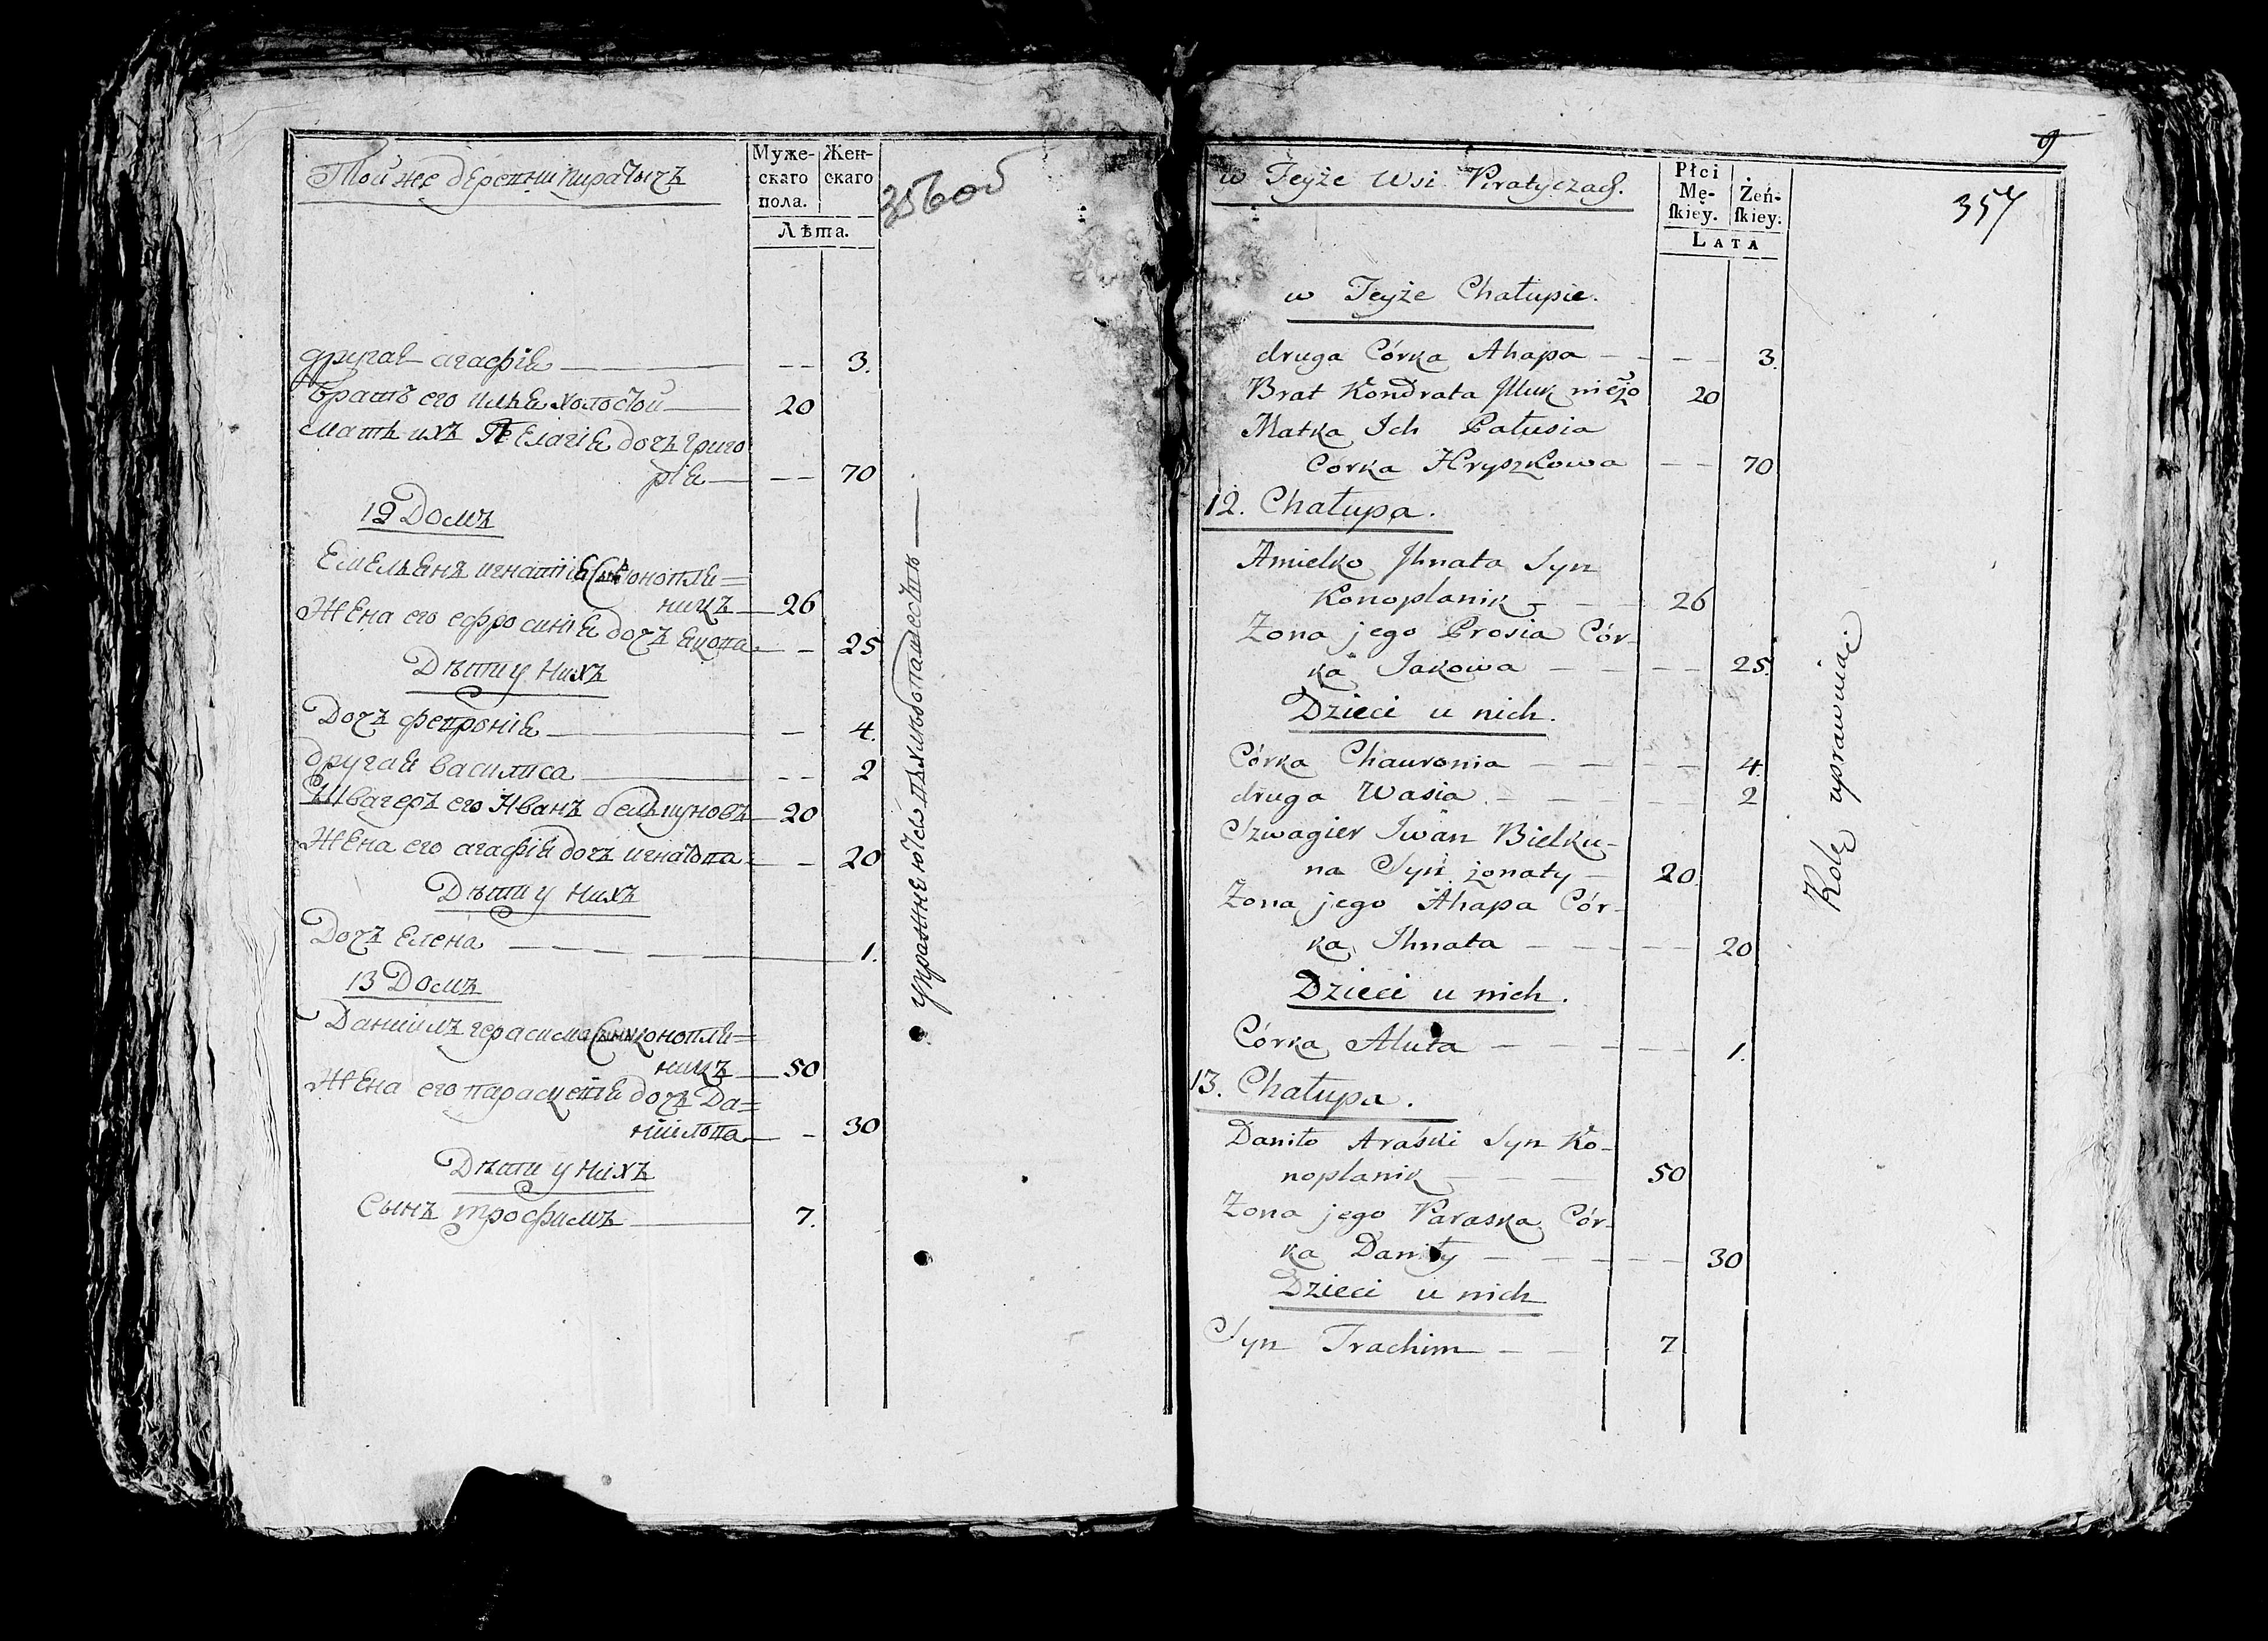 Той же деревни Пиратычъ
Муже-
скаго
пола.
Жен-
скаго
Лѣта.
356 об
другая агафія — 3.
братъ его илья холостой — 20
мать ихъ Пелагія дочь григо
рія — 70
12 Домъ
Емельянъ игнатія Сынъ конопля=
никъ — 26
Жена его ефросинія дочь якова — 25
Дѣти у нихъ
Дочь феѵронія — 4.
другая василиса — 2
Швагеръ его Иванъ — 20
Жена его агафія дочь игнатова — 20
Дѣти у нихъ
Дочь Елена — 1.
13 Домъ
Данiилъ герасима Сынъ конопля=
никъ — 50
Жена его параскевія дочь Да=
нiилова — 30
Дѣти у нихъ
Сынъ трофимъ — 7.
упражнеются
9
357
w Teyże Wsi Piratyczach.
Płci
Mę-
ſkiey.
Żeń-
ſkiey.
LATA
w Teyże Chałupie.
druga Córka Ahapa — 3.
Brat Kondrata 20
Matka Ich Pałusia
Córka Hryszkowa — 70
12. Chałupa.
Amielko Jhnata Syn
Konoplanik — 26
Żona jego Prosia Cór-
ka Jakowa — 25.
Dzieci u nich.
Córka Chauronia — 4.
druga Wasia — 2
Szwagier Iwan Bielku-
na Syn żonaty — 20.
Żona jego Ahapa Cór-
ka Jhnata — 20
Dzieci u nich.
Córka Aluta — 1.
13. Chałupa.
Daniło Araśki Syn Ko-
noplanik — 50
Żona jego Paraska Cór-
ka Daniły — 30
Dzieci u nich
Syn Trachim — 7
Rolę uprawnia